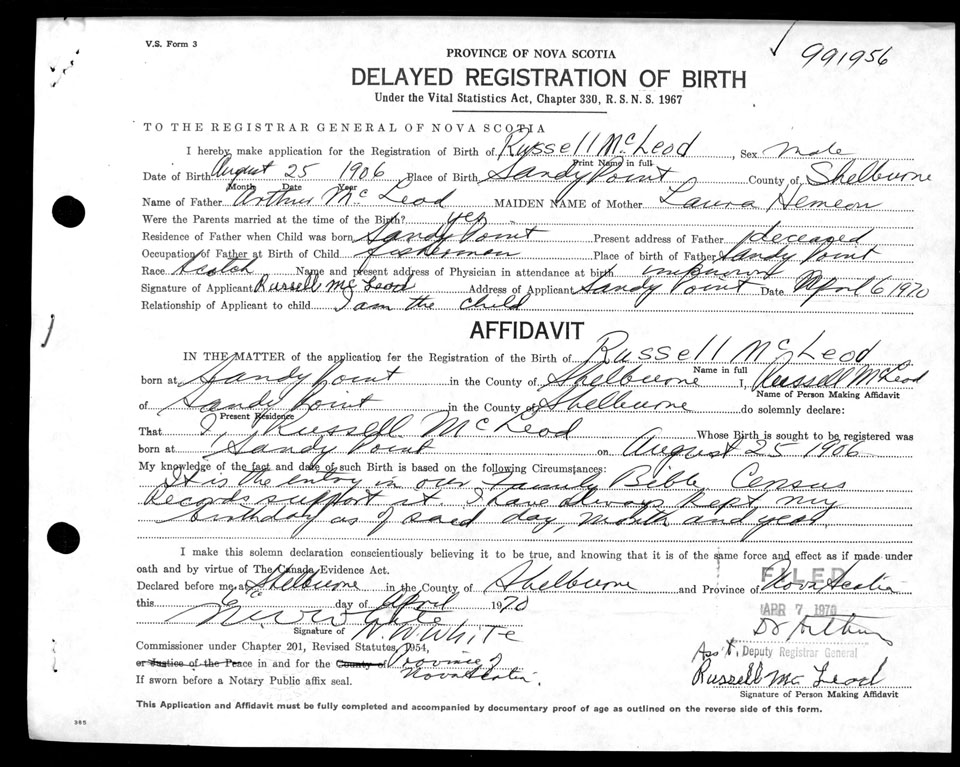 V.S. Form 3
991956
PROVINCE OF NOVA SCOTIA
DELAYED REGISTRATION OF BIRTH
Under the Vital Statistics Act, Chapter 330, R. S. N. S. 1967
TO THE REGISTRAR GENERAL OF NOVA SCOTIA
I hereby, make application for the Registration of Birth of Russell McLeod, Sex Male
Print Name in full
Date of Birth August 25 1906 Place of Birth Sandy Point County of Shelburne
Month Date Year
Name of Father Arthur McLeod MAIDEN NAME of Mother Laura Hemeon
Were the Parents married at the time of the Birth? yes
Residence of Father when Child was born Sandy Point Present address of Father deceased
Occupation of Father at Birth of Child fisherman Place of birth of Father Sandy Point
Race Scotch Name and present address of Physician in attendance at birth unknown
Signature of Applicant Russell McLeod Address of Applicant Sandy Point Date April 6 1970
Relationship of Applicant to child I am the child
AFFIDAVIT
IN THE MATTER of the application for the Registration of the Birth of Russell McLeod
Name in full
born at Sandy Point in the County of Shelburne I, Russell McLeod
Name of Person Making Affidavit
of Sandy Point in the County of Shelburne do solemnly declare:
Present Residence
That I, Russell McLeod Whose Birth is sought to be registered was
born at Sandy Point on August 25 1906
My knowledge of the fact and date of such Birth is based on the following Circumstances:
It is the entry in our Family Bible, Census
Records support it. I have always kept my
birthday as of said day, month and year
I make this solemn declaration conscientiously believing it to be true, and knowing that it is of the same force and effect as if made under
oath and by virtue of The Canada Evidence Act.
Declared before me at Shelburne in the County of Shelburne and Province of Nova Scotia
FILED
this 6 day of April 1970
APR 7 1970
Signature of W. W. White
Commissioner under Chapter 201, Revised Statutes, 1954,
Ass't. Deputy Registrar General
or Justice of the Peace in and for the County of Province of
Nova Scotia.
Russell McLeod
If sworn before a Notary Public affix seal.
Signature of Person Making Affidavit
This Application and Affidavit must be fully completed and accompanied by documentary proof of age as outlined on the reverse side of this form.
385